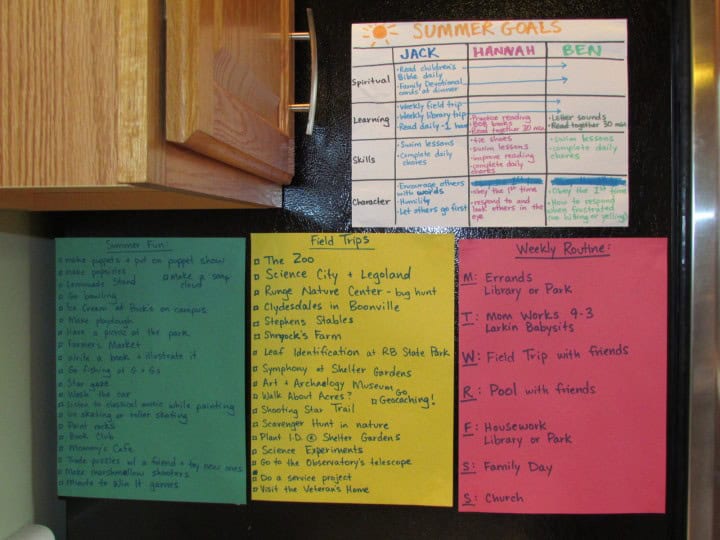 SUMMER GOALS
JACK HANNAH BEN
Spiritual
• Read children's
Bible daily
• Family Devotional
cards at dinner
Learning
• Weekly field trip
• Weekly library trip
• Read daily - 1 hour
• Practice reading
BOB books
• Read together 30 min.
• Letter sounds
• Read together 30 min
Skills
• Swim lessons
• Complete daily
chores
• tie shoes
• swim lessons
• improve reading
• complete daily
chores
• swim lessons
• complete daily
chores
Character
• Encourage others
with words
• Humility
• Let others go first
• obey the 1st time
• respond to and
look others in the
eye
• Obey the 1st time
• How to respond
when frustrated
(no hitting or yelling)
Summer Fun
make puppets + put on puppet show
make popsicles
make a soap
cloud
Lemonade Stand
Go bowling
Ice Cream at Bucks on campus
Make playdough
Have a picnic at the park
Farmers Market
Write a book + illustrate it
Go fishing at G + G's
Star gaze
Wash the car
Listen to classical music while painting
Ice skating or roller skating
Paint rocks
Book Club
Mommy's Cafe
Trade puzzles w/ a friend + try new ones
Make marshmallow shooters
Minute to Win It games
Field Trips
The Zoo
Science City + Legoland
Runge Nature Center - bug hunt
Clydesdales in Boonville
Stephens Stables
Shryock's Farm
Leaf Identification at RB State Park
Symphony at Shelter Gardens
Art + Archaeology Museum
Walk About Acres?
Go
Geocaching!
Shooting Star Trail
Scavenger Hunt in nature
Plant I.D. @ Shelter Gardens
Science Experiments
Go to the Observatory's telescope
Do a service project
Visit the Veteran's Home
Weekly Routine:
M: Errands
Library or Park
T: Mom Works 9-3
Larkin Babysits
W: Field Trip with friends
R: Pool with friends
F: Housework
Library or Park
S: Family Day
S: Church